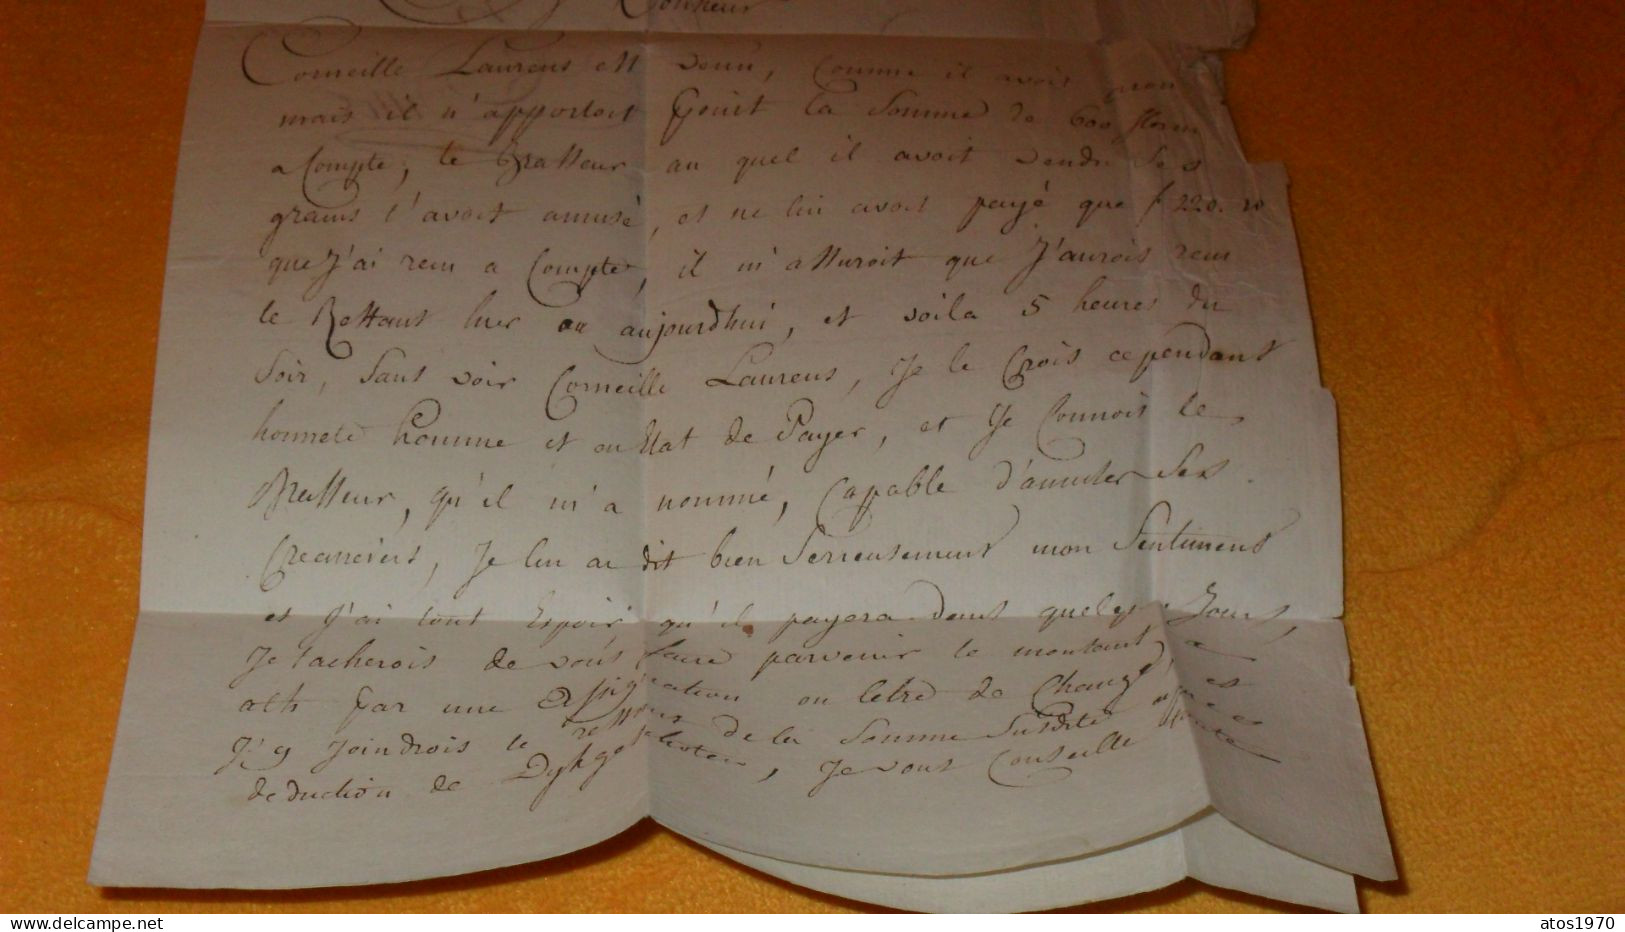 Monsieur
Corneille Laurens est venu, Comme il avoit
mais il n'apportoit point la Somme de 600 florins
a Compte, le Brasseur au quel il avoit vendu Ses
grains l'avoit amusé, et ne lui avoit payé que f 220. 10
que J'ai recu a Compte, il m'assuroit que J'aurois recu
le Restant hier ou aujourdhui, et voila 5 heures du
Soir, Sans voir Corneille Laurens, Je le Crois cependant
honnete homme et en Etat de Payer, et Je Connois le
Brasseur, qu'il m'a nommé, Capable d'amuser Ses
Creanciers, Je lui ai dit bien Serieusement mon Sentiment
et J'ai tout Espoir qu'il payera dans quelqs. Jours,
Je tacherois de vous faire parvenir le montant a
ath par une assignation ou lettre de Change,
J'y Joindrois le de la Somme Susdite
deduction de Dykgelden, Je vous Conseille
atos1970
www.delcampe.net